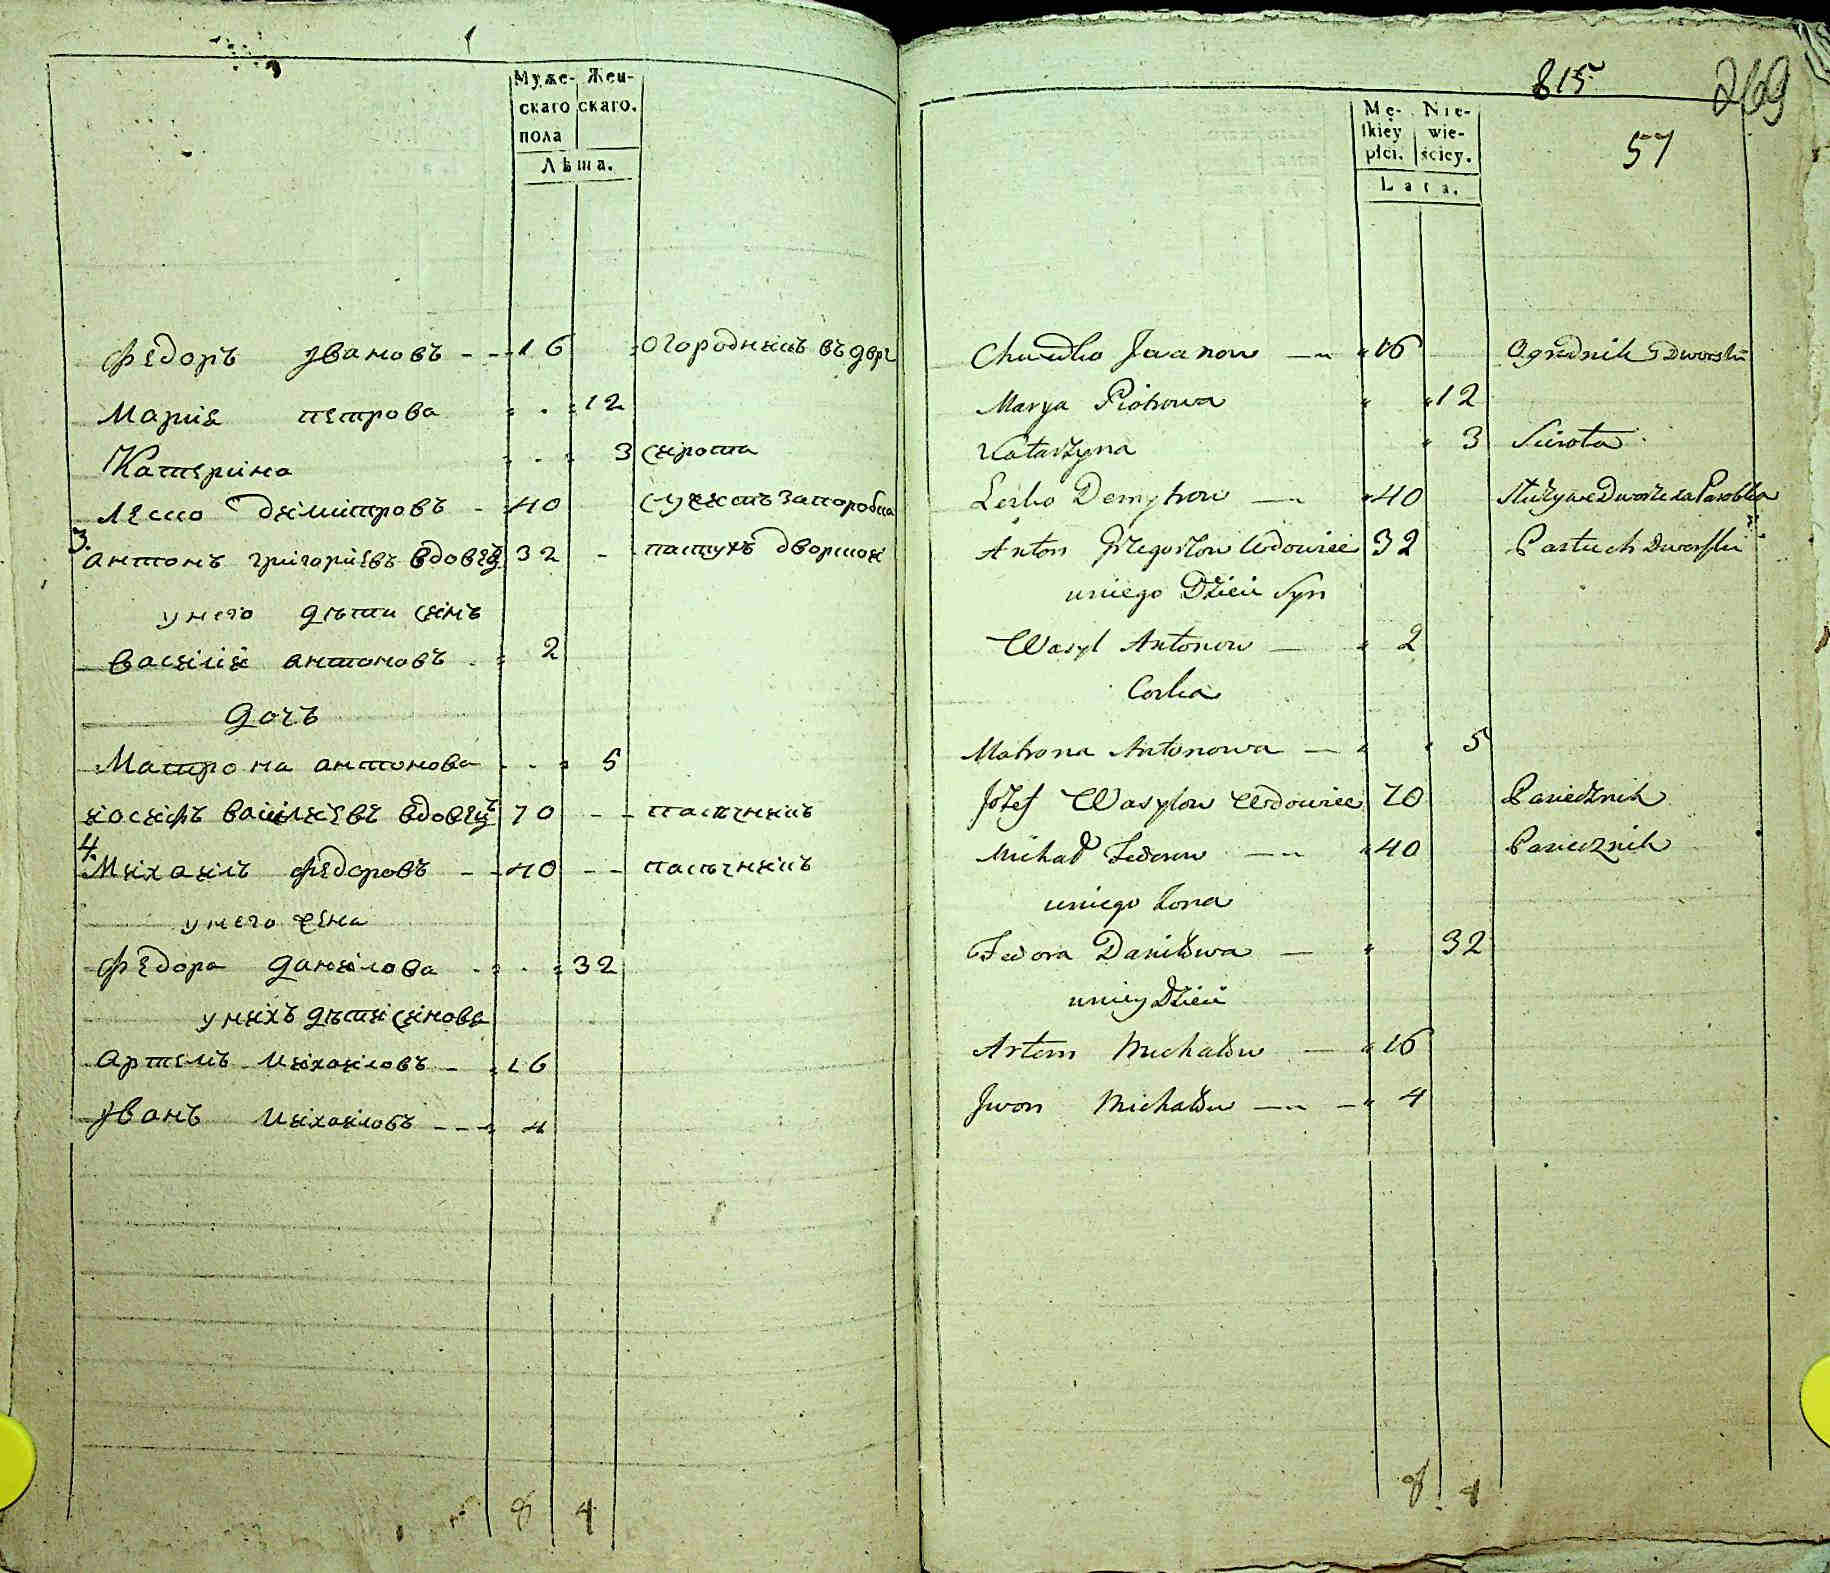 Муже- Жен-
скаго скаго.
пола
Лѣта.
Федоръ Ивановъ - - 16 огородникъ въ дворѣ
Мария петрова 12
Катерина 3 сирота
Леско димитровъ - 40 служитъ за паробка
3. антонъ григориевъ вдовецъ 32 - пастухъ дворской
у него дѣти синъ
василий антоновъ 2
дочъ
Матрона антонова 5
иосифъ василиевъ вдовецъ 70 - - пасѣчникъ
4. Михаилъ федоровъ - - 40 - - пасѣчникъ
у него жена
федора данилова 32
у нихъ дѣти синова
артемъ михаиловъ - 16
Иванъ михаиловъ - - - 4
8 4
815 269
57
Mę- Nie-
skiey wie-
płci. ściey.
Lata.
Chwedko Iwanow — 16 Ogrodnik Dworski
Marya Piotrowa 12
Katarzyna 3 Sirota
Lesko Demytrow — 40 Służy we Dworze za Parobka
Anton Grzegorzow Wdowiec 32 Pastuch Dworski
u niego Dzieci Syn
Wasyl Antonow — 2
Corka
Matrona Antonowa — 5
Jozef Wasylow Wdowiec 70 Pasiecznik
Michał Fedorow — 40 Pasiecznik
u niego Żona
Fedora Daniłowa — 32
u niey Dzieci
Artem Michałow — 16
Iwon Michałow — 4
8 4